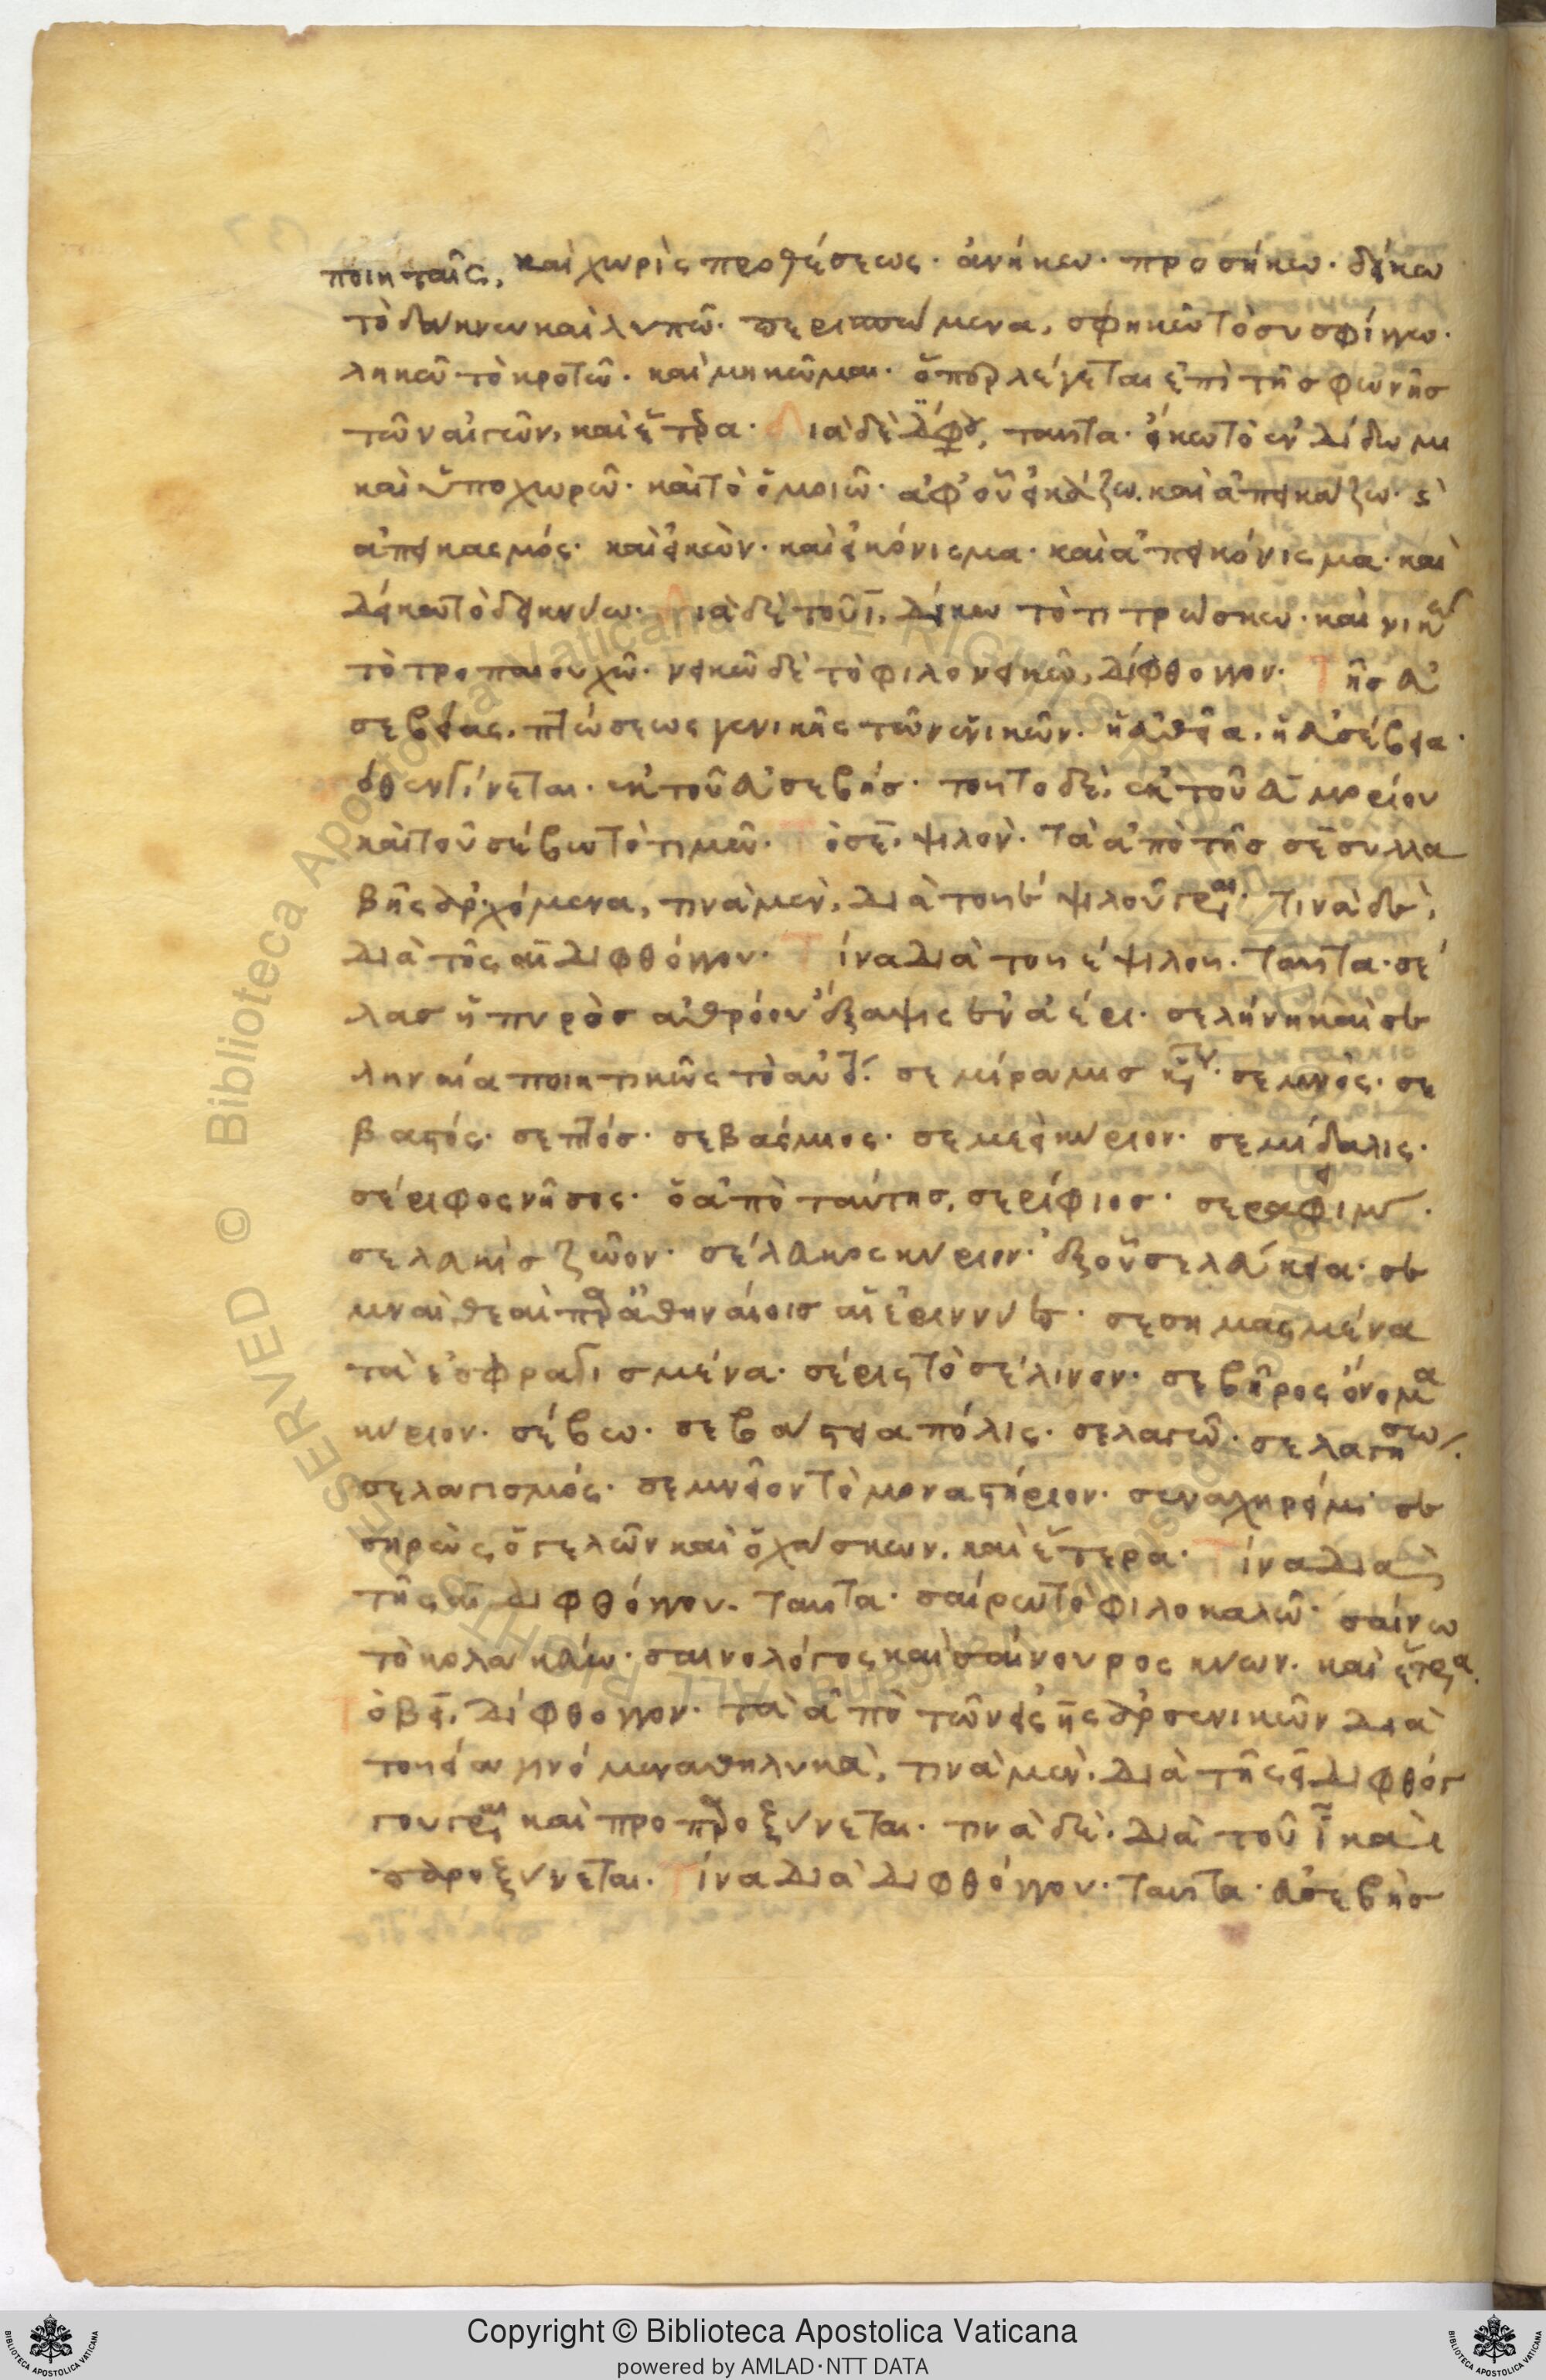 ποιηταῖς, καὶ χωρὶς προθέσεως· ἀνήκω· προσήκω· δήκω
τὸ δάκνω καὶ λυπῶ· περισπώμενα, σφηκῶ τὸ συσφίγγω·
ληκῶ τὸ κροτῶ· καὶ μηκῶμαι· ὅπερ λέγεται ἐπὶ τῆς φωνῆς
τῶν αἰγῶν, καὶ ἕτερα· Διὰ δὲ διφθόγγου, ταῦτα· εἴκω τὸ ἐνδίδωμι
καὶ ὑποχωρῶ· καὶ τὸ ὁμοιῶ· ἀφ' οὗ εἰκάζω. καὶ ἀπεικάζω· καὶ
ἀπεικασμός· καὶ εἰκών· καὶ εἰκόνισμα· καὶ ἀπεικόνισμα· καὶ
δείκω τὸ δεικνύω· Διὰ δὲ τοῦ ι, δίκω τὸ τιτρώσκω· καὶ νικῶ
τὸ τροπαιουχῶ· νεικῶ δὲ τὸ φιλονεικῶ, δίφθογγον· Τῆς ἀ
σεβείας. πτώσεως γενικῆς τῶν ἑνικῶν· ἡ εὐθεῖα, ἡ ἀσέβεια·
ὅθεν γίνεται· ἐκ τοῦ ἀσεβής· τοῦτο δὲ, ἐκ τοῦ α μορίου
καὶ τοῦ σέβω τὸ τιμῶ· Τὸ σε. ψιλόν· τὰ ἀπὸ τῆς σε συλλα
βῆς ἀρχόμενα, τινὰ μὲν, διὰ τοῦ ε ψιλοῦ γράφεται· τινὰ δὲ,
διὰ τῆς αι διφθόγγου· Τίνα διὰ τοῦ ε ψιλοῦ· ταῦτα· σέ
λας ἡ πυρὸς ἀθρόον ἔξαψις ἐν ἀέρι· σελήνη καὶ σε
ληναία ποιητικῶς τὸ αὐτό· σεμίραμις κύριον· σεμνός· σε
βαστός· σεπτός· σεβάσμιος· σεμεεὶ κύριον· σεμίδαλις·
σέριφος νῆσος· ὁ ἀπὸ ταύτης, σερίφιος· σεραφείμ·
σελαχὶς ζῶον· σέλευκος κύριον· ἐξ οὗ σελεύκεια· σε
μναὶ θεαὶ παρὰ ἀθηναίοις αἱ ἐριννύες· σεσημασμένα
τὰ ἐσφραγισμένα· σέρις τὸ σέλινον· σεβῆρος ὄνομα
κύριον· σέβω· σεβάστεια πόλις· σελαγῶ· σελαγήσω·
σελαγισμός· σεμνεῖον τὸ μοναστήριον· σεναχηρείμ· σε
σηρὼς, ὁ γελῶν καὶ ὁ χάσκων. καὶ ἕτερα· Τίνα διὰ
τῆς αι διφθόγγου· ταῦτα· σαίρω τὸ φιλοκαλῶ· σαίνω
τὸ κολακεύω· σαινολόγος καὶ σαίνουρος κύων· καὶ ἕτερα.
Τὸ βει, δίφθογγον· τὰ ἀπὸ τῶν εἰς ης ἀρσενικῶν διὰ
τοῦ εια γινόμενα θηλυκά, τινὰ μὲν. διὰ τῆς ει διφθόγ
γου γράφεται καὶ προπαροξύνεται· τινὰ δὲ. διὰ τοῦ ι καὶ
παροξύνεται. Τίνα διὰ διφθόγγου· ταῦτα· ἀσεβὴς
Copyright © Biblioteca Apostolica Vaticana
powered by AMLAD·NTT DATA